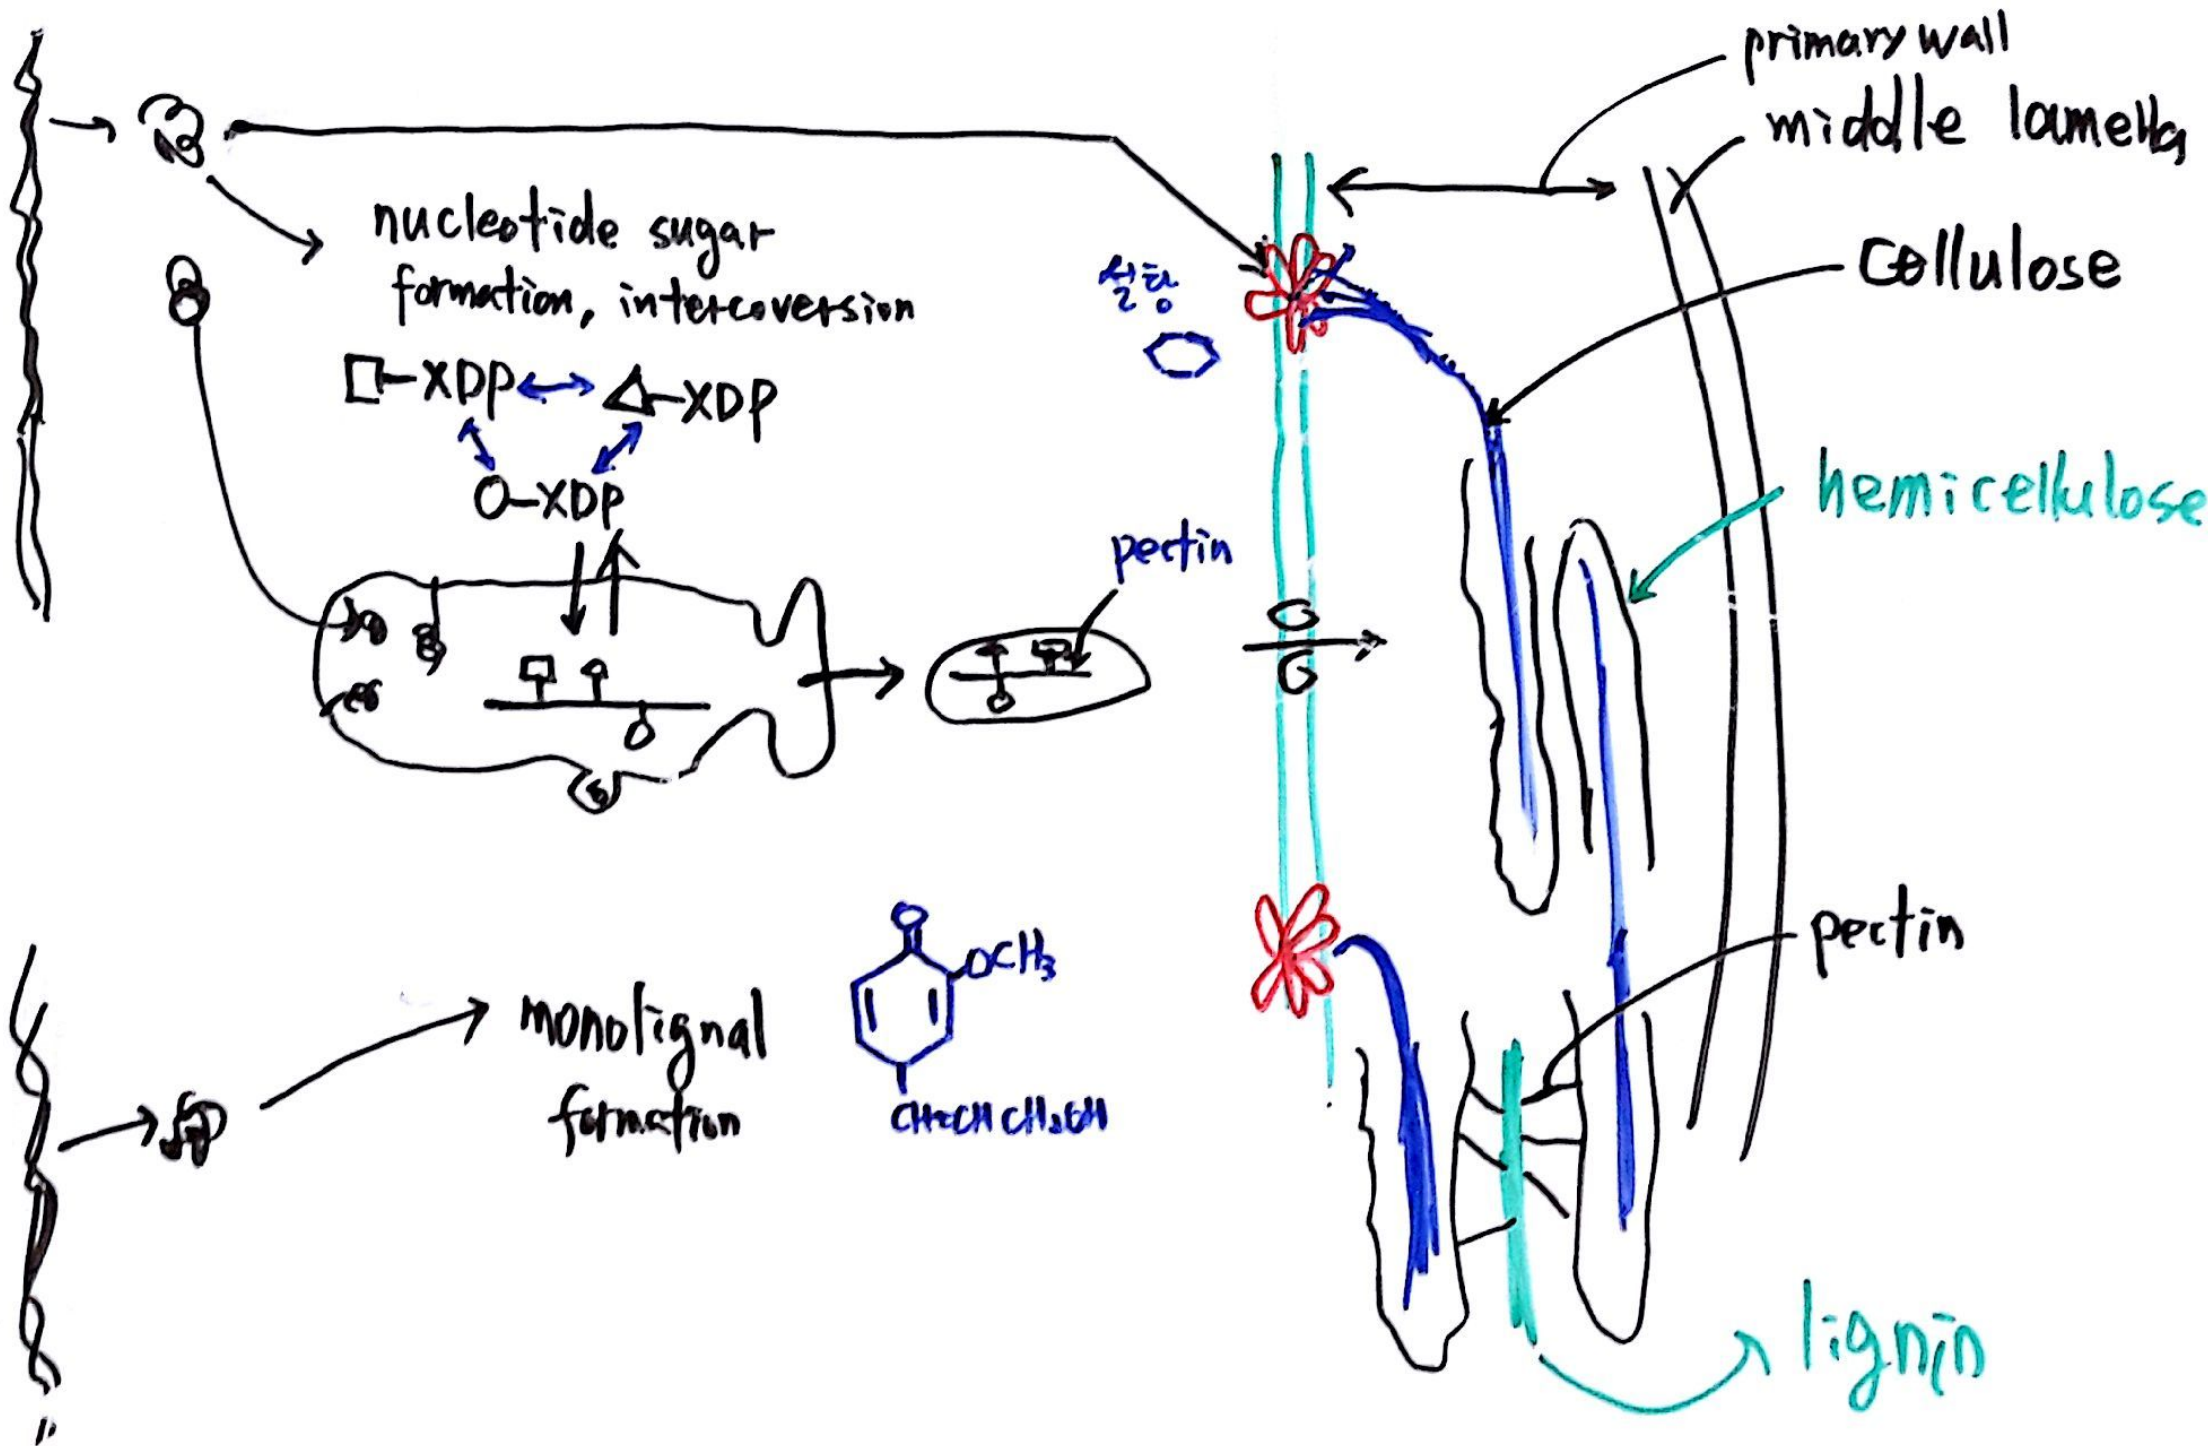 primary wall
middle lamella
nucleotide sugar
formation, intercoversion
설탕
cellulose
□-XDP ↔ △-XDP
O-XDP
hemicellulose
pectin
pectin
monolignal
formation
O
OCH3
CH=CH CH2OH
lignin